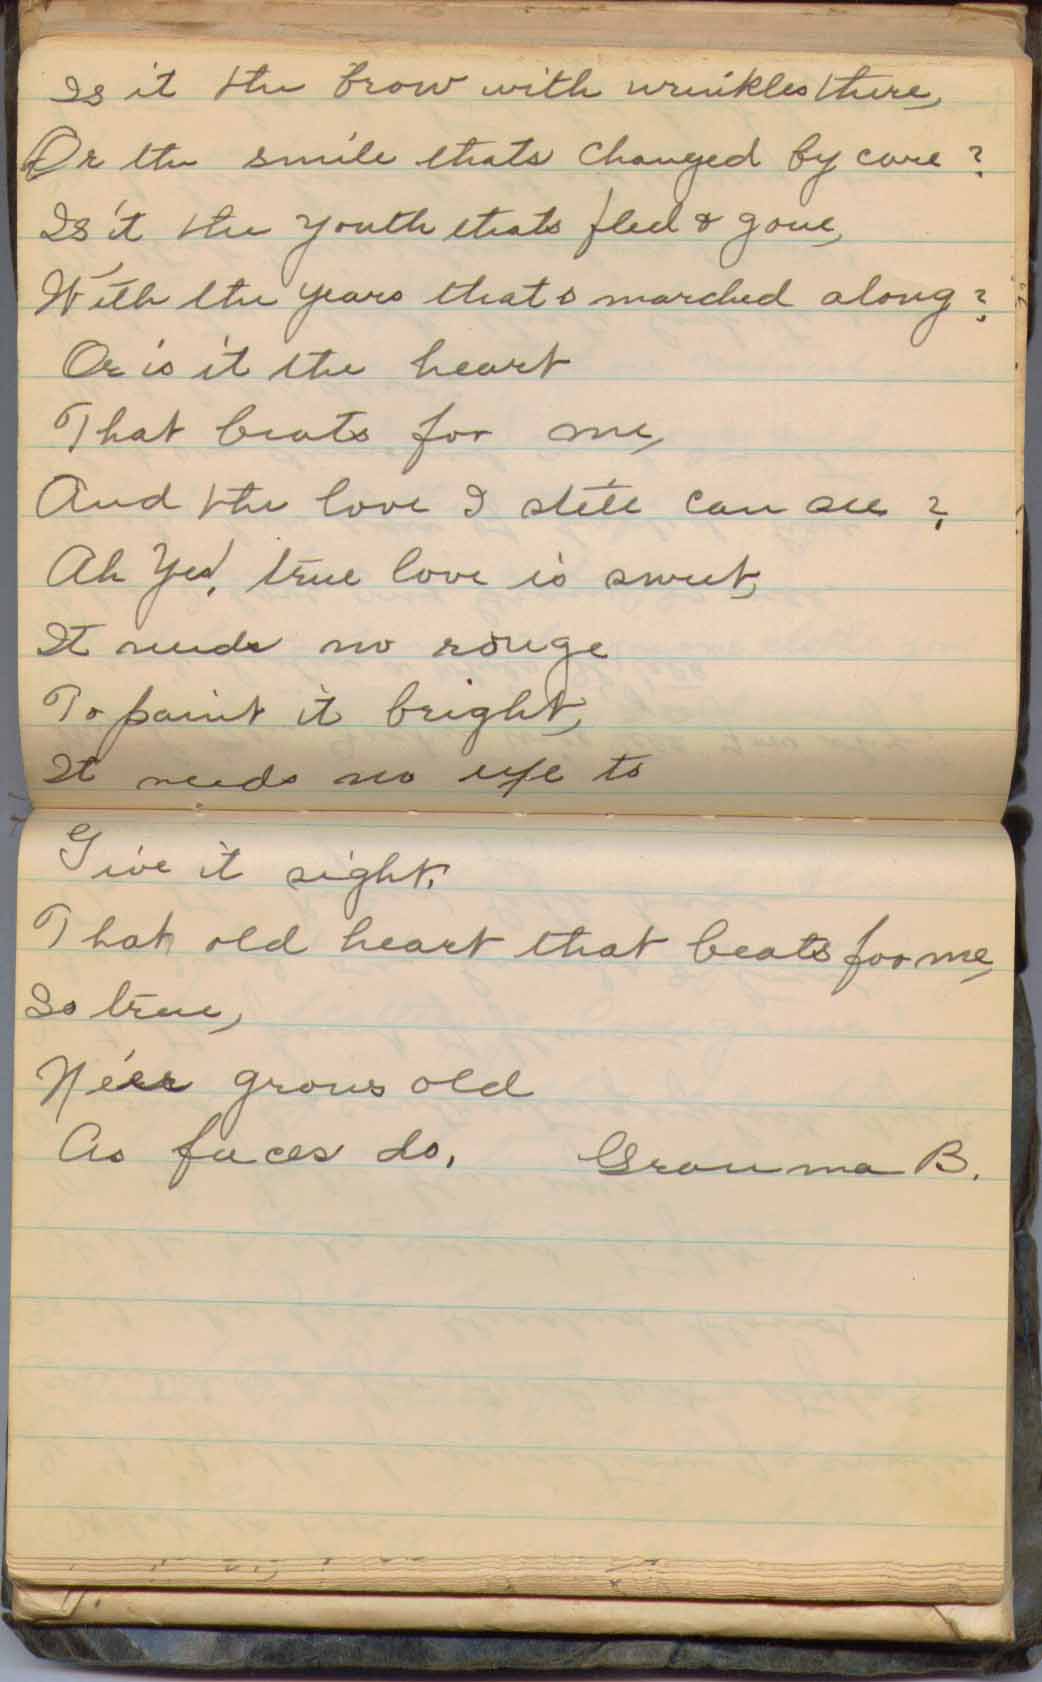 Is it the brow with wrinkles there,
Or the smile thats changed by care?
Is it the youth thats fled & gone,
With the years thats marched along?
Or is it the heart
That beats for me,
And the love I still can see?
Ah Yes! true love is sweet,
It needs no rouge
To paint it bright,
It needs no eye to
Give it sight.
That old heart that beats for me,
So true,
Ne'er grows old
As faces do. Granma B.